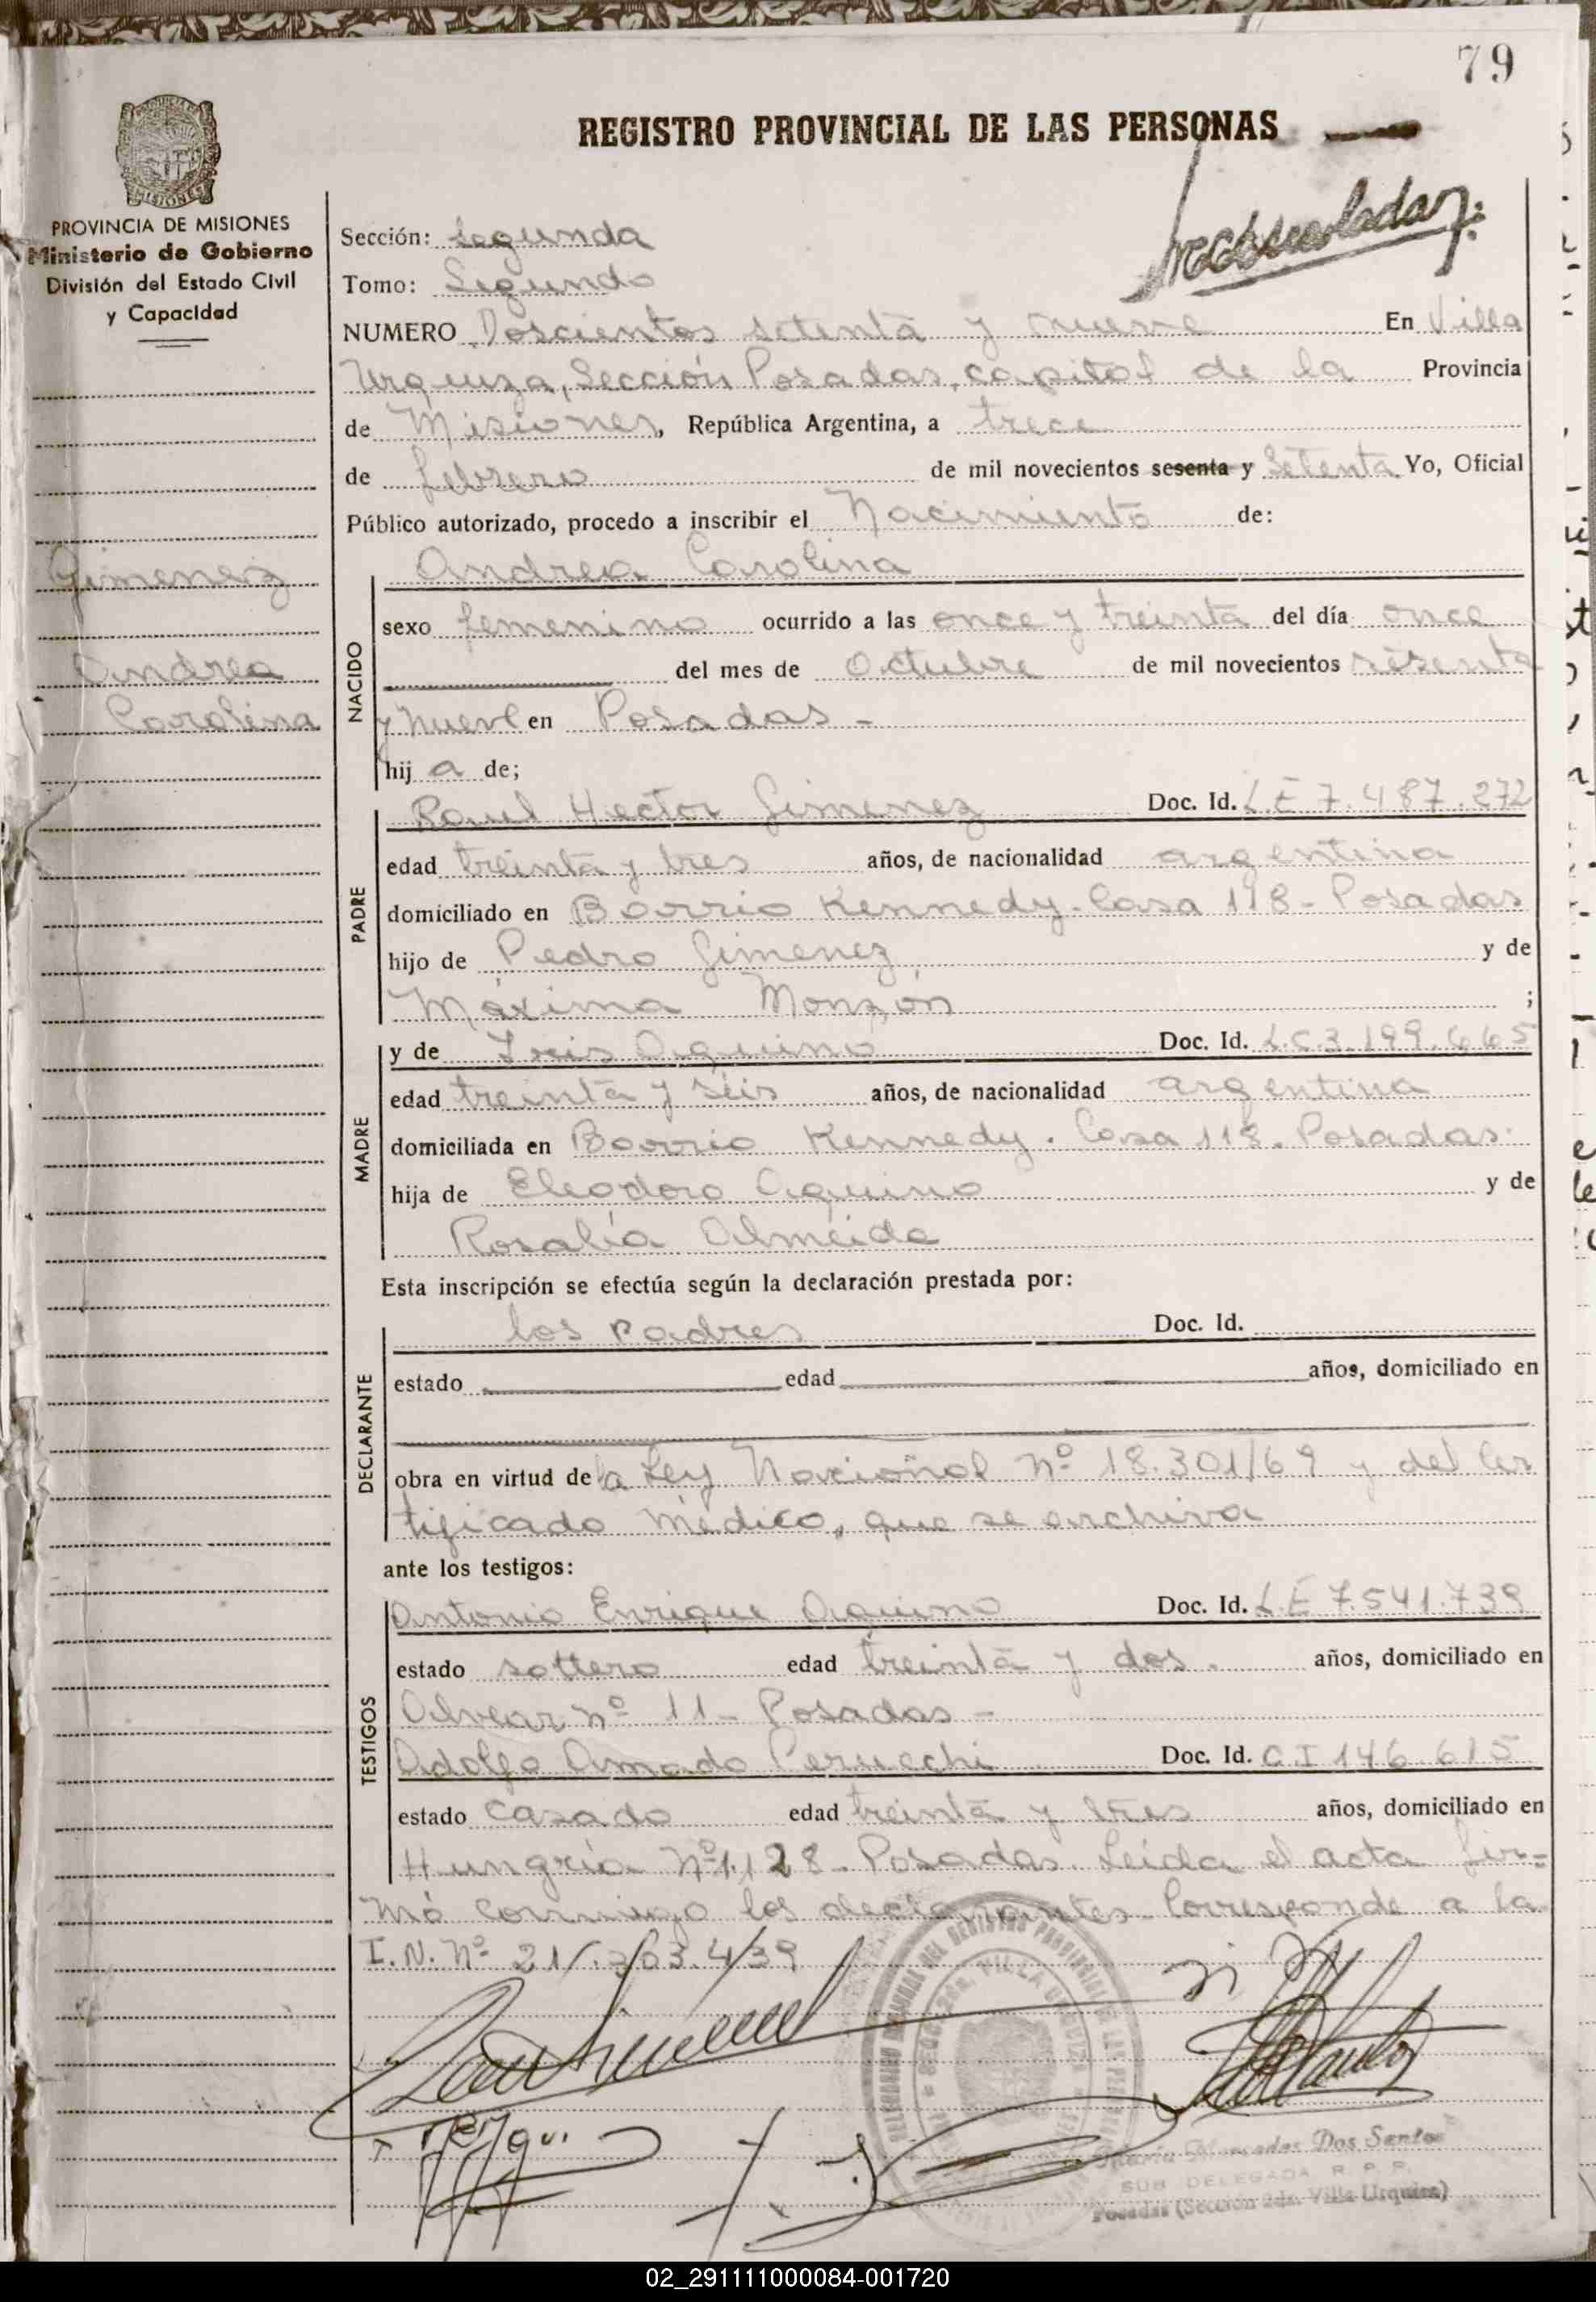 79
REGISTRO PROVINCIAL DE LAS PERSONAS
MISIONES
PROVINCIA DE MISIONES
Ministerio de Gobierno
División del Estado Civil
y Capacidad
Gimenez
Andrea
Carolina
Sección: Segunda
Tomo: Segundo
NUMERO Doscientos setenta y nueve En Villa
Urquiza, Sección Posadas, capital de la Provincia
de Misiones, República Argentina, a trece
de febrero de mil novecientos sesenta y setenta Yo, Oficial
Público autorizado, procedo a inscribir el Nacimiento de:
NACIDO
Andrea Carolina
sexo femenino ocurrido a las once y treinta del día once
del mes de Octubre de mil novecientos sesenta
y nueve en Posadas -
hij a de;
PADRE
Raul Hector Gimenez Doc. Id. L E 7.487.272
edad treinta y tres años, de nacionalidad argentina
domiciliado en Barrio Kennedy - Casa 118 - Posadas
hijo de Pedro Gimenez y de
Máxima Monzón ;
MADRE
y de Iris Aquino Doc. Id. L.C 3.199.665
edad treinta y seis años, de nacionalidad argentina
domiciliada en Barrio Kennedy. Casa 118. Posadas.
hija de Eleodoro Aquino y de
Rosalía Almeida
Esta inscripción se efectúa según la declaración prestada por:
DECLARANTE
los padres Doc. Id.
estado edad años, domiciliado en
obra en virtud de la Ley Nacional Nº 18.301/69 y del cer
tificado médico, que se archiva
ante los testigos:
TESTIGOS
Antonio Enrique Aquino Doc. Id. L.E 7.541.739
estado soltero edad treinta y dos. años, domiciliado en
Alvear Nº 11 - Posadas -
Adolfo Amado Perucchi Doc. Id. C.I 146.615
estado casado edad treinta y tres años, domiciliado en
Hungría Nº 1.128 - Posadas. Leída el acta fir=
mó conmigo los declarantes - Corresponde a la
I.N. Nº
VILLA URQUIZA
María Mercedes Dos Santos
SUB DELEGADA R. P. P.
Posadas (Sección 2da. Villa Urquiza)
02_291111000084-001720